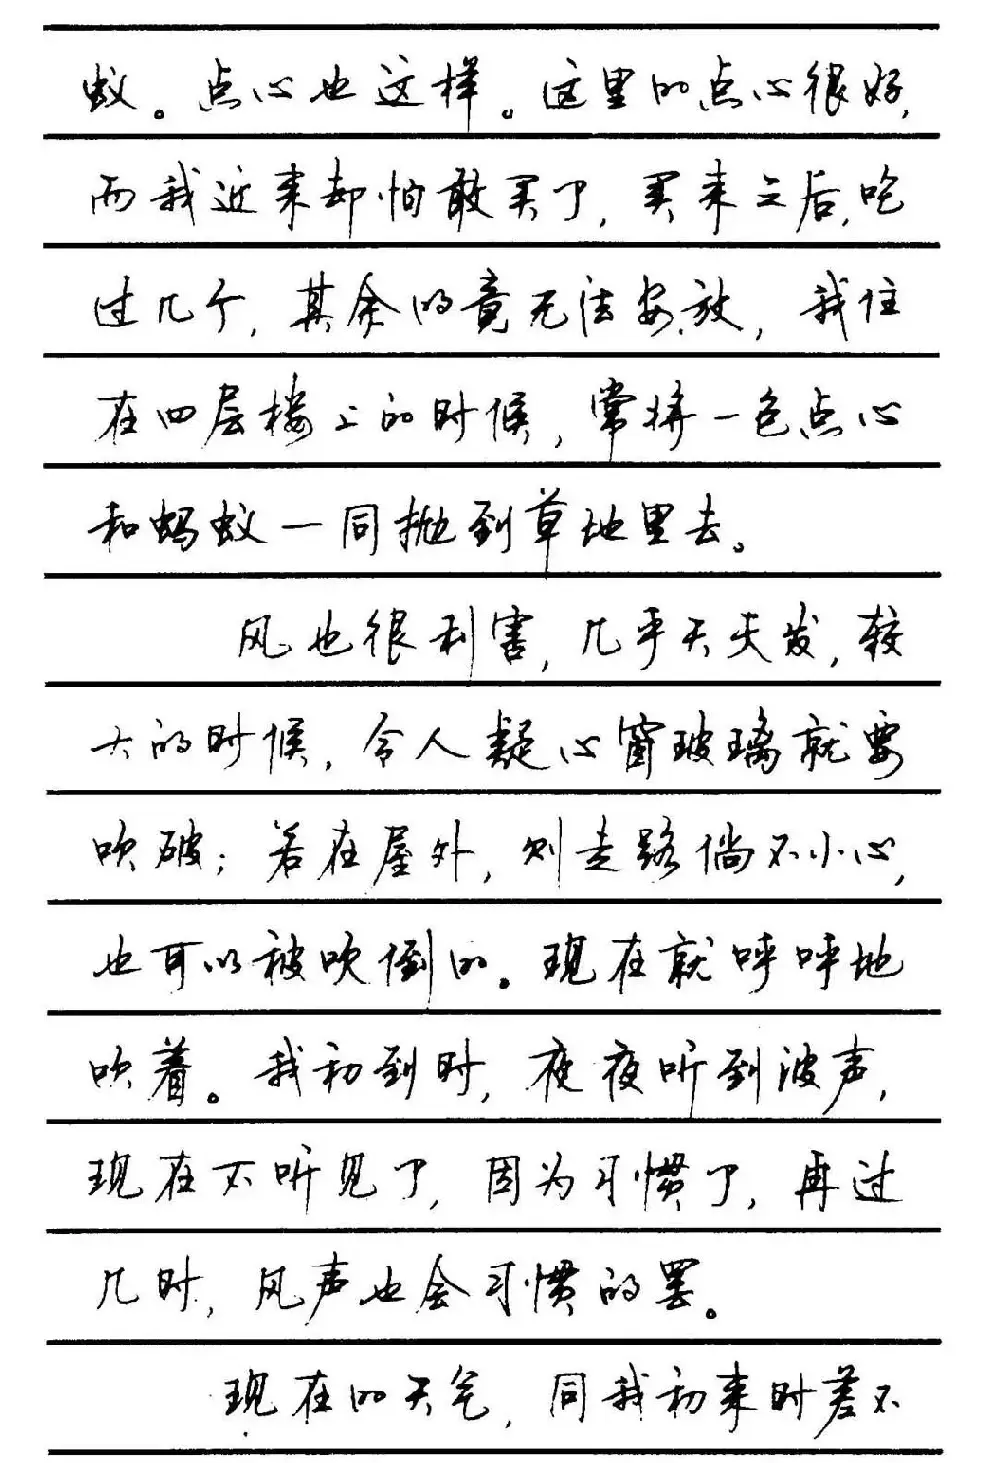 蚁。点心也这样。这里的点心很好,
而我近来却怕敢买了,买来之后,吃
过几个,其余的竟无法安放,我住
在四层楼上的时候,常将一包点心
和蚂蚁一同抛到草地里去。
风也很利害,几乎天天发,较
大的时候,令人疑心窗玻璃就要
吹破;若在屋外,则走路倘不小心,
也可以被吹倒的。现在就呼呼地
吹着。我初到时,夜夜听到波声,
现在不听见了,因为习惯了,再过
几时,风声也会习惯的罢。
现在的天气,同我初来时差不